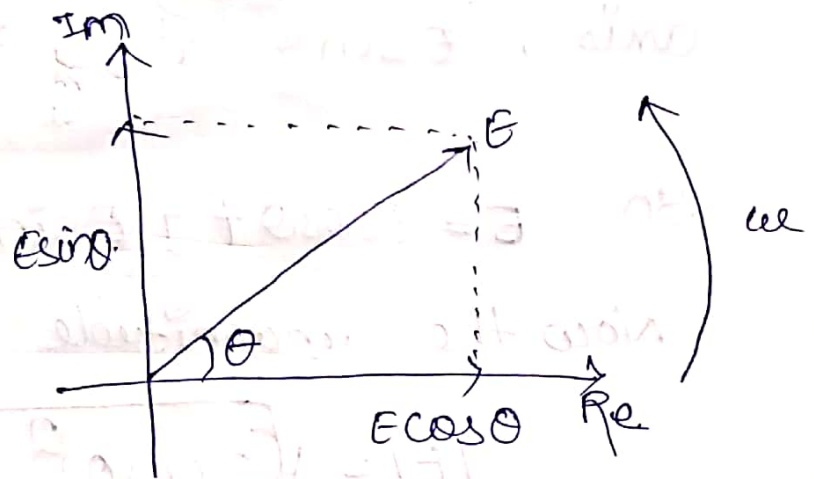 Im
E
Esinθ
ω
θ
Ecosθ
Re